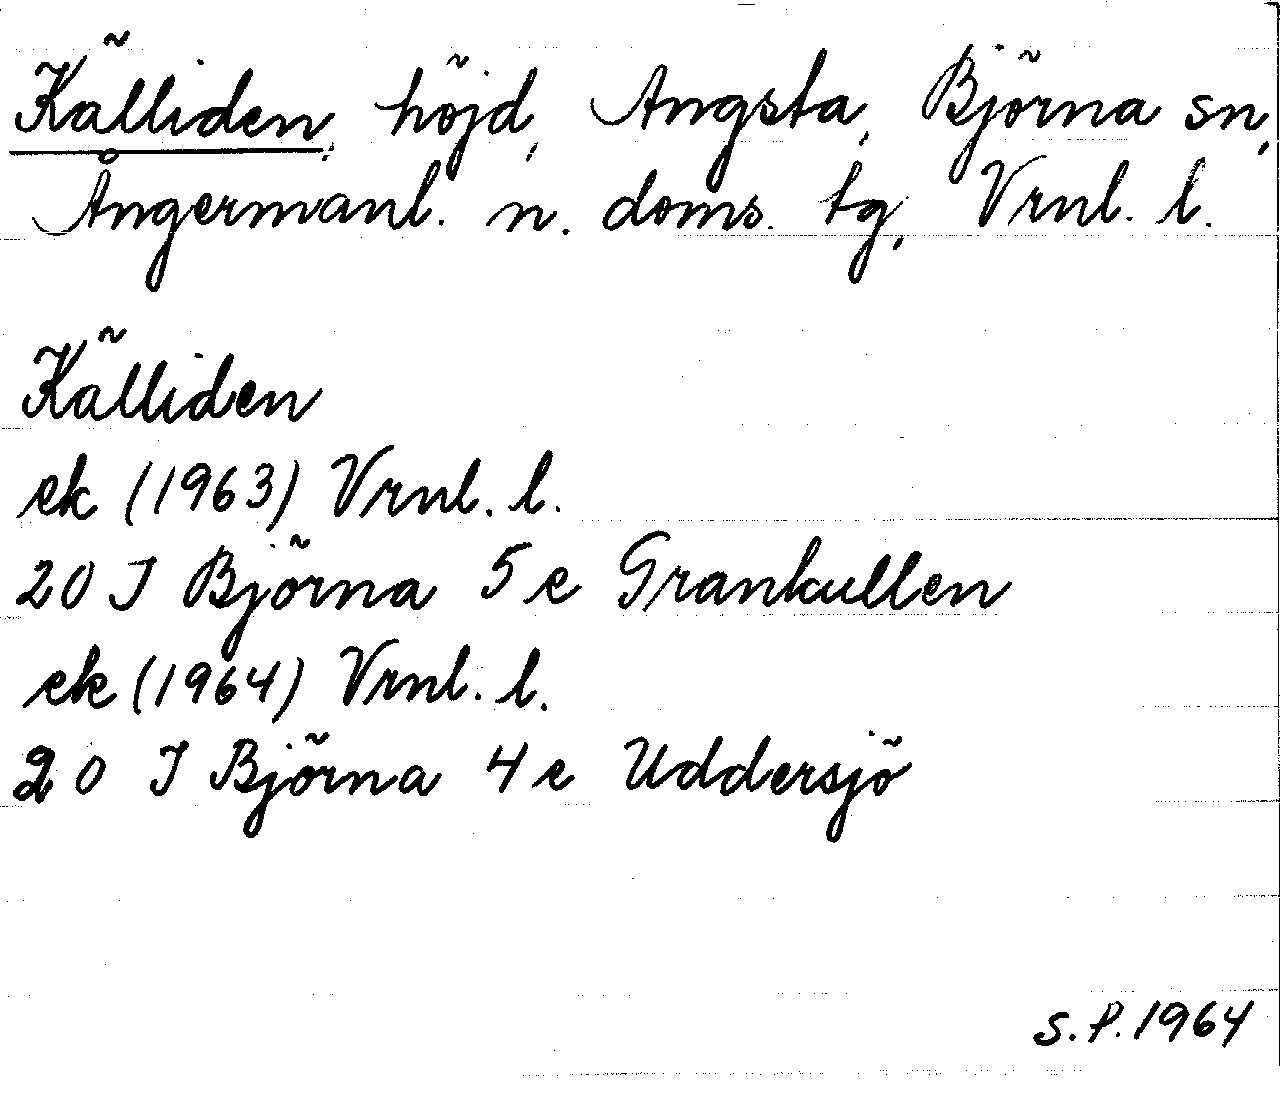 Källiden, höjd, Angsta, Björna sn,
Ångermanl. n. doms. tg, Vrnl. l.
Källiden
ek (1963) Vrnl. l.
20 J Björna 5 e Grankullen
ek (1964) Vrnl. l.
20 J Björna 4 e Uddersjö
S. P. 1964